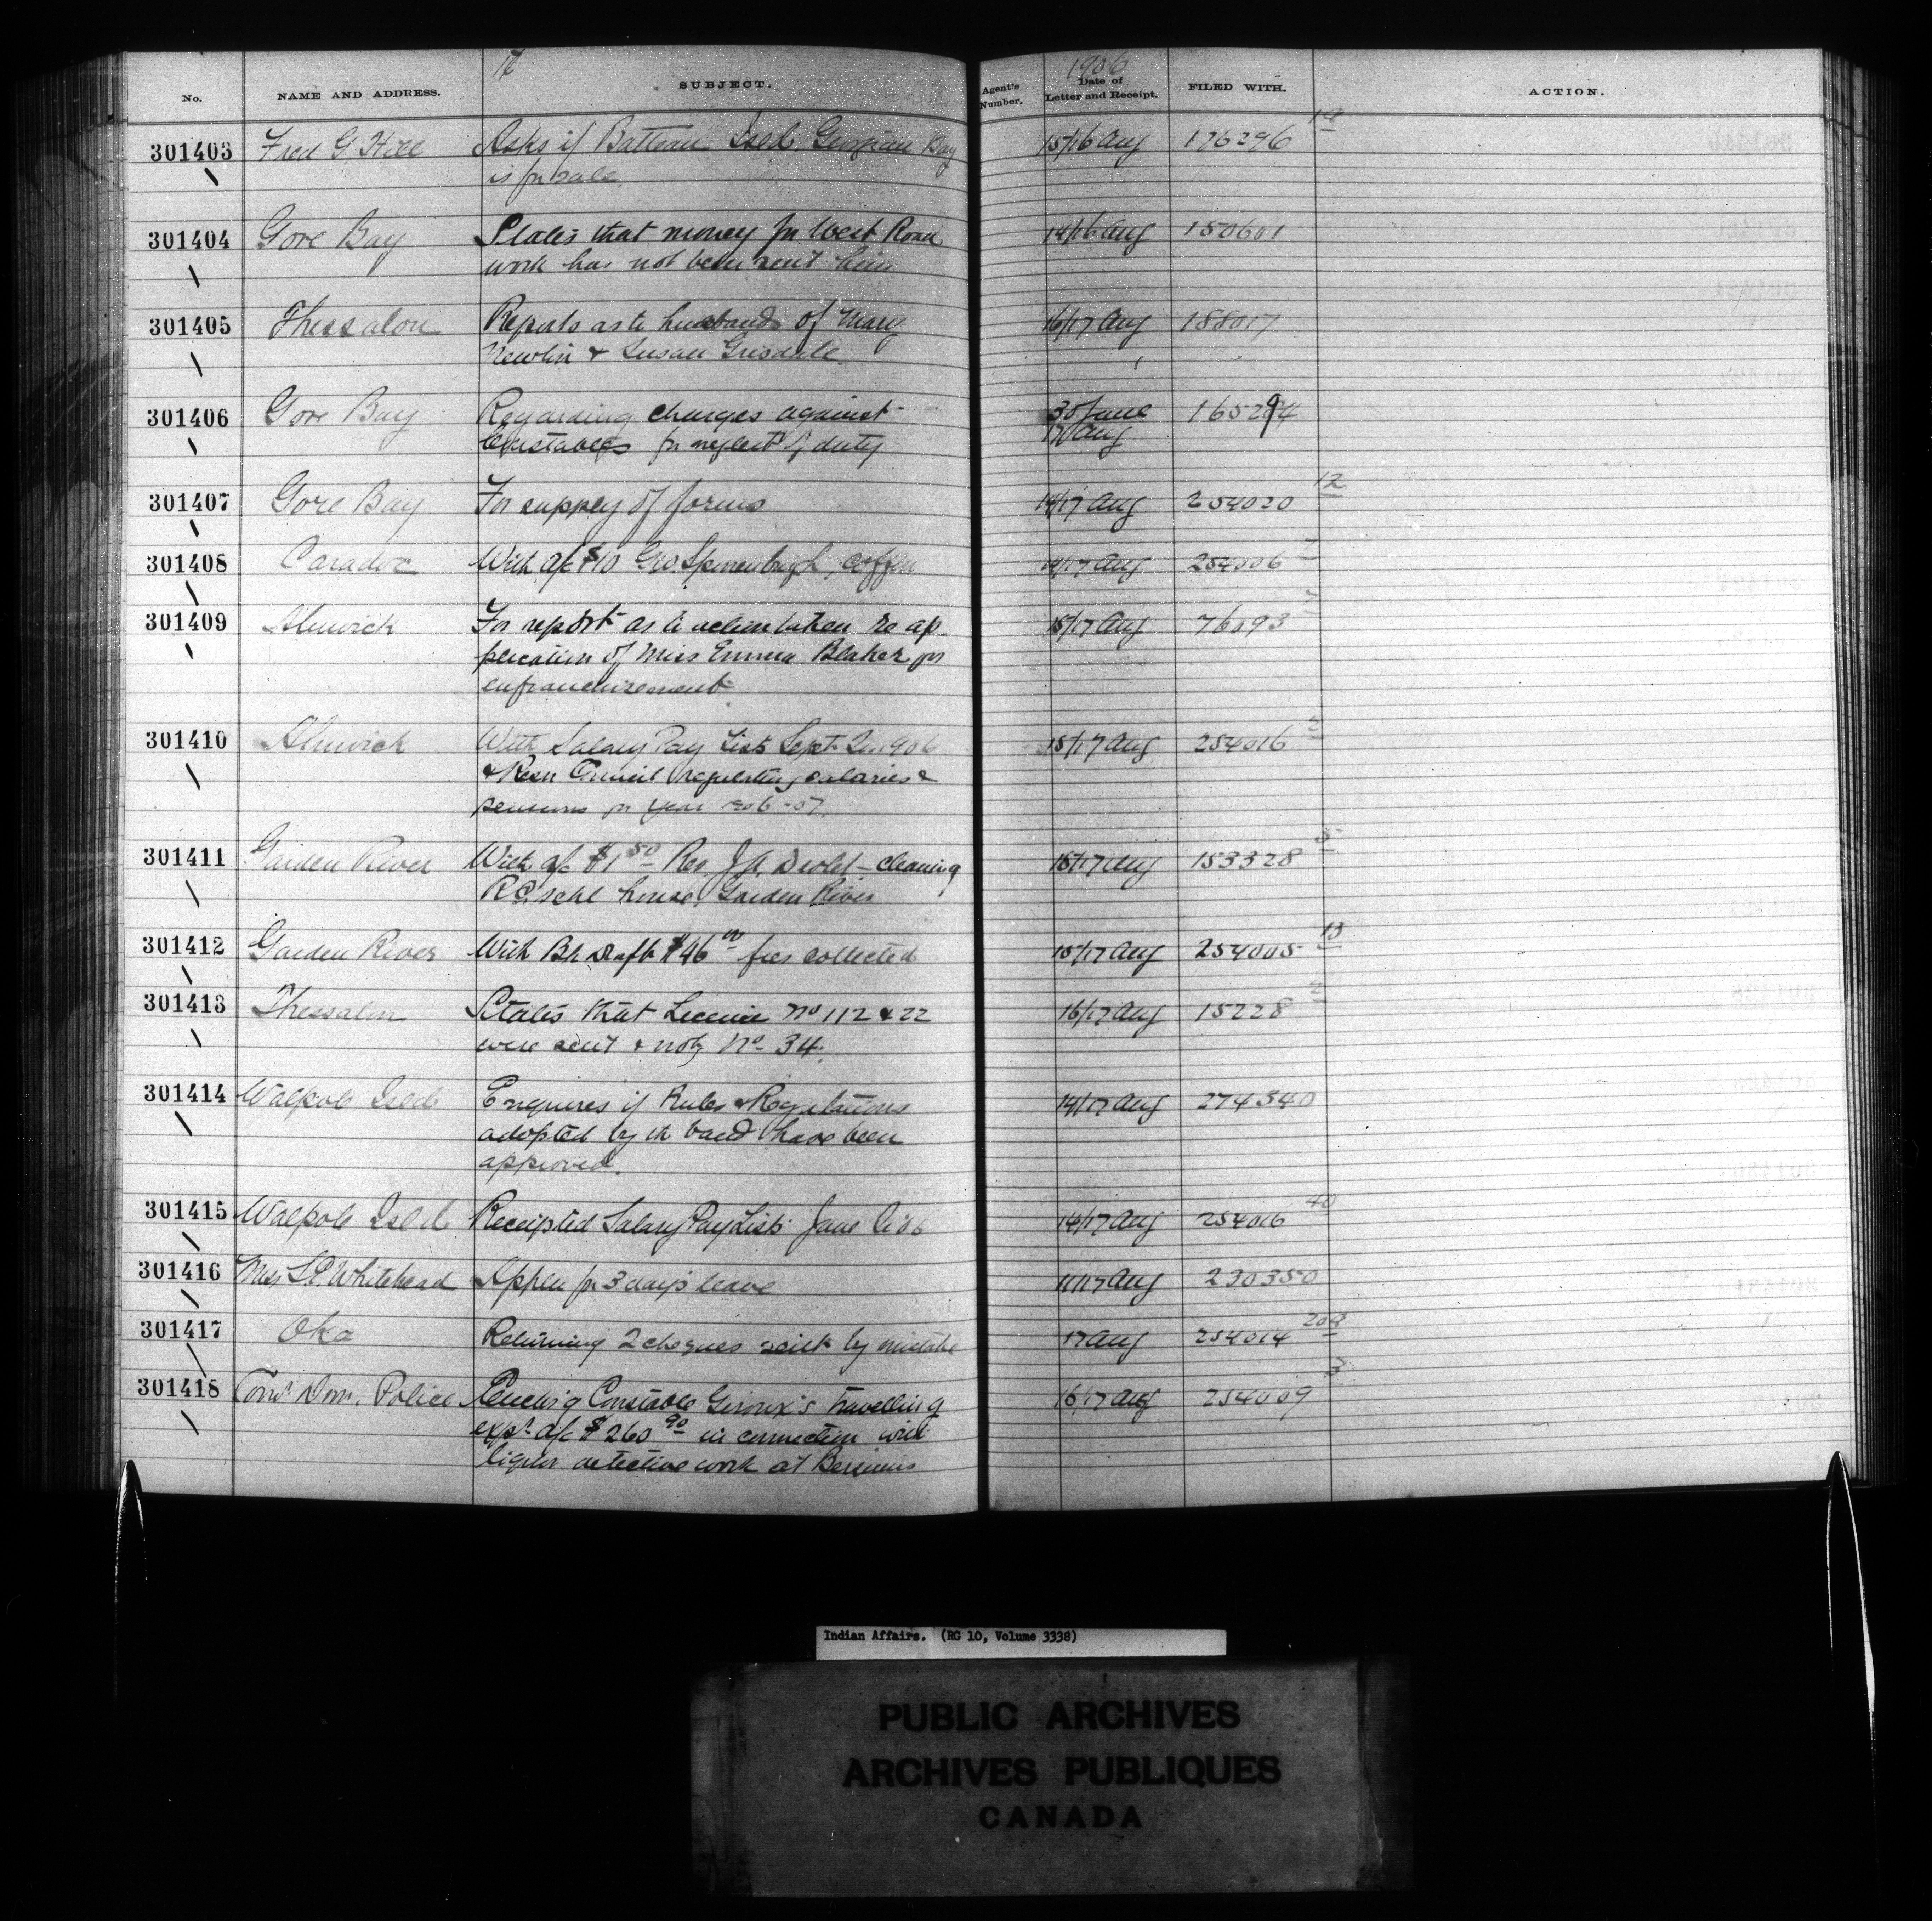 1906
No. NAME AND ADDRESS. SUBJECT. Agent's Number. Date of Letter and Receipt. FILED WITH. ACTION.
301403 Fred G Hill Asks if Batteau Isld. Georgian Bay 15/16 Aug 176296
is for sale
301404 Gore Bay States that money for West Road 14/16 Aug 150601
work has not been sent him
301405 Thessalon Reports as to husbands of Mary 16/17 Aug 188017
Newlin & Susan Grisdale
301406 Gore Bay Regarding charges against 30 June
Constables for neglect of duty 17 Aug
301407 Gore Bay For supply of forms 14/17 Aug 254020 12
301408 Caradoc With a/c $10 Geo coffin 14/17 Aug 254006 7
301409 Alnwick For report as to action taken re ap- 15/17 Aug 76093 7
plication of Miss Emma Blaker for
enfranchisement
301410 Alnwick With Salary Pay List Sept Qr 1906 15/17 Aug 254016
& Resn Council regulating salaries &
pensions for year 1906-07.
301411 Garden River With a/c $1 50 Rev J.A. Drolet - cleaning 15/17 Aug 153328 5
R.C. schl house, Garden River
301412 Garden River With Bk Draft $46 00 fees collected 15/17 Aug 254005 13
301413 Thessalon States that License No 112 & 22 16/17 Aug 15228 2
were sent & not No- 34.
301414 Walpole Isld Enquires if Rules & Regulations 14/17 Aug 274340
adopted by the band have been
approved.
301415 Walpole Isld Receipted Salary Pay List June 14/17 Aug 254016 40
301416 Miss Whitehead Appln for 3 days leave 11/17 Aug 230350
301417 Oka Returning 2 cheques sent by mistake 17 Aug 254014
301418 Comr Dom. Police Constable Giroux's travelling 16/17 Aug 254009 3
exps a/c $260 90 in connection with
liquor detective work at Bersimis
Indian Affairs. (RG 10, Volume 3338)
PUBLIC ARCHIVES
ARCHIVES PUBLIQUES
CANADA